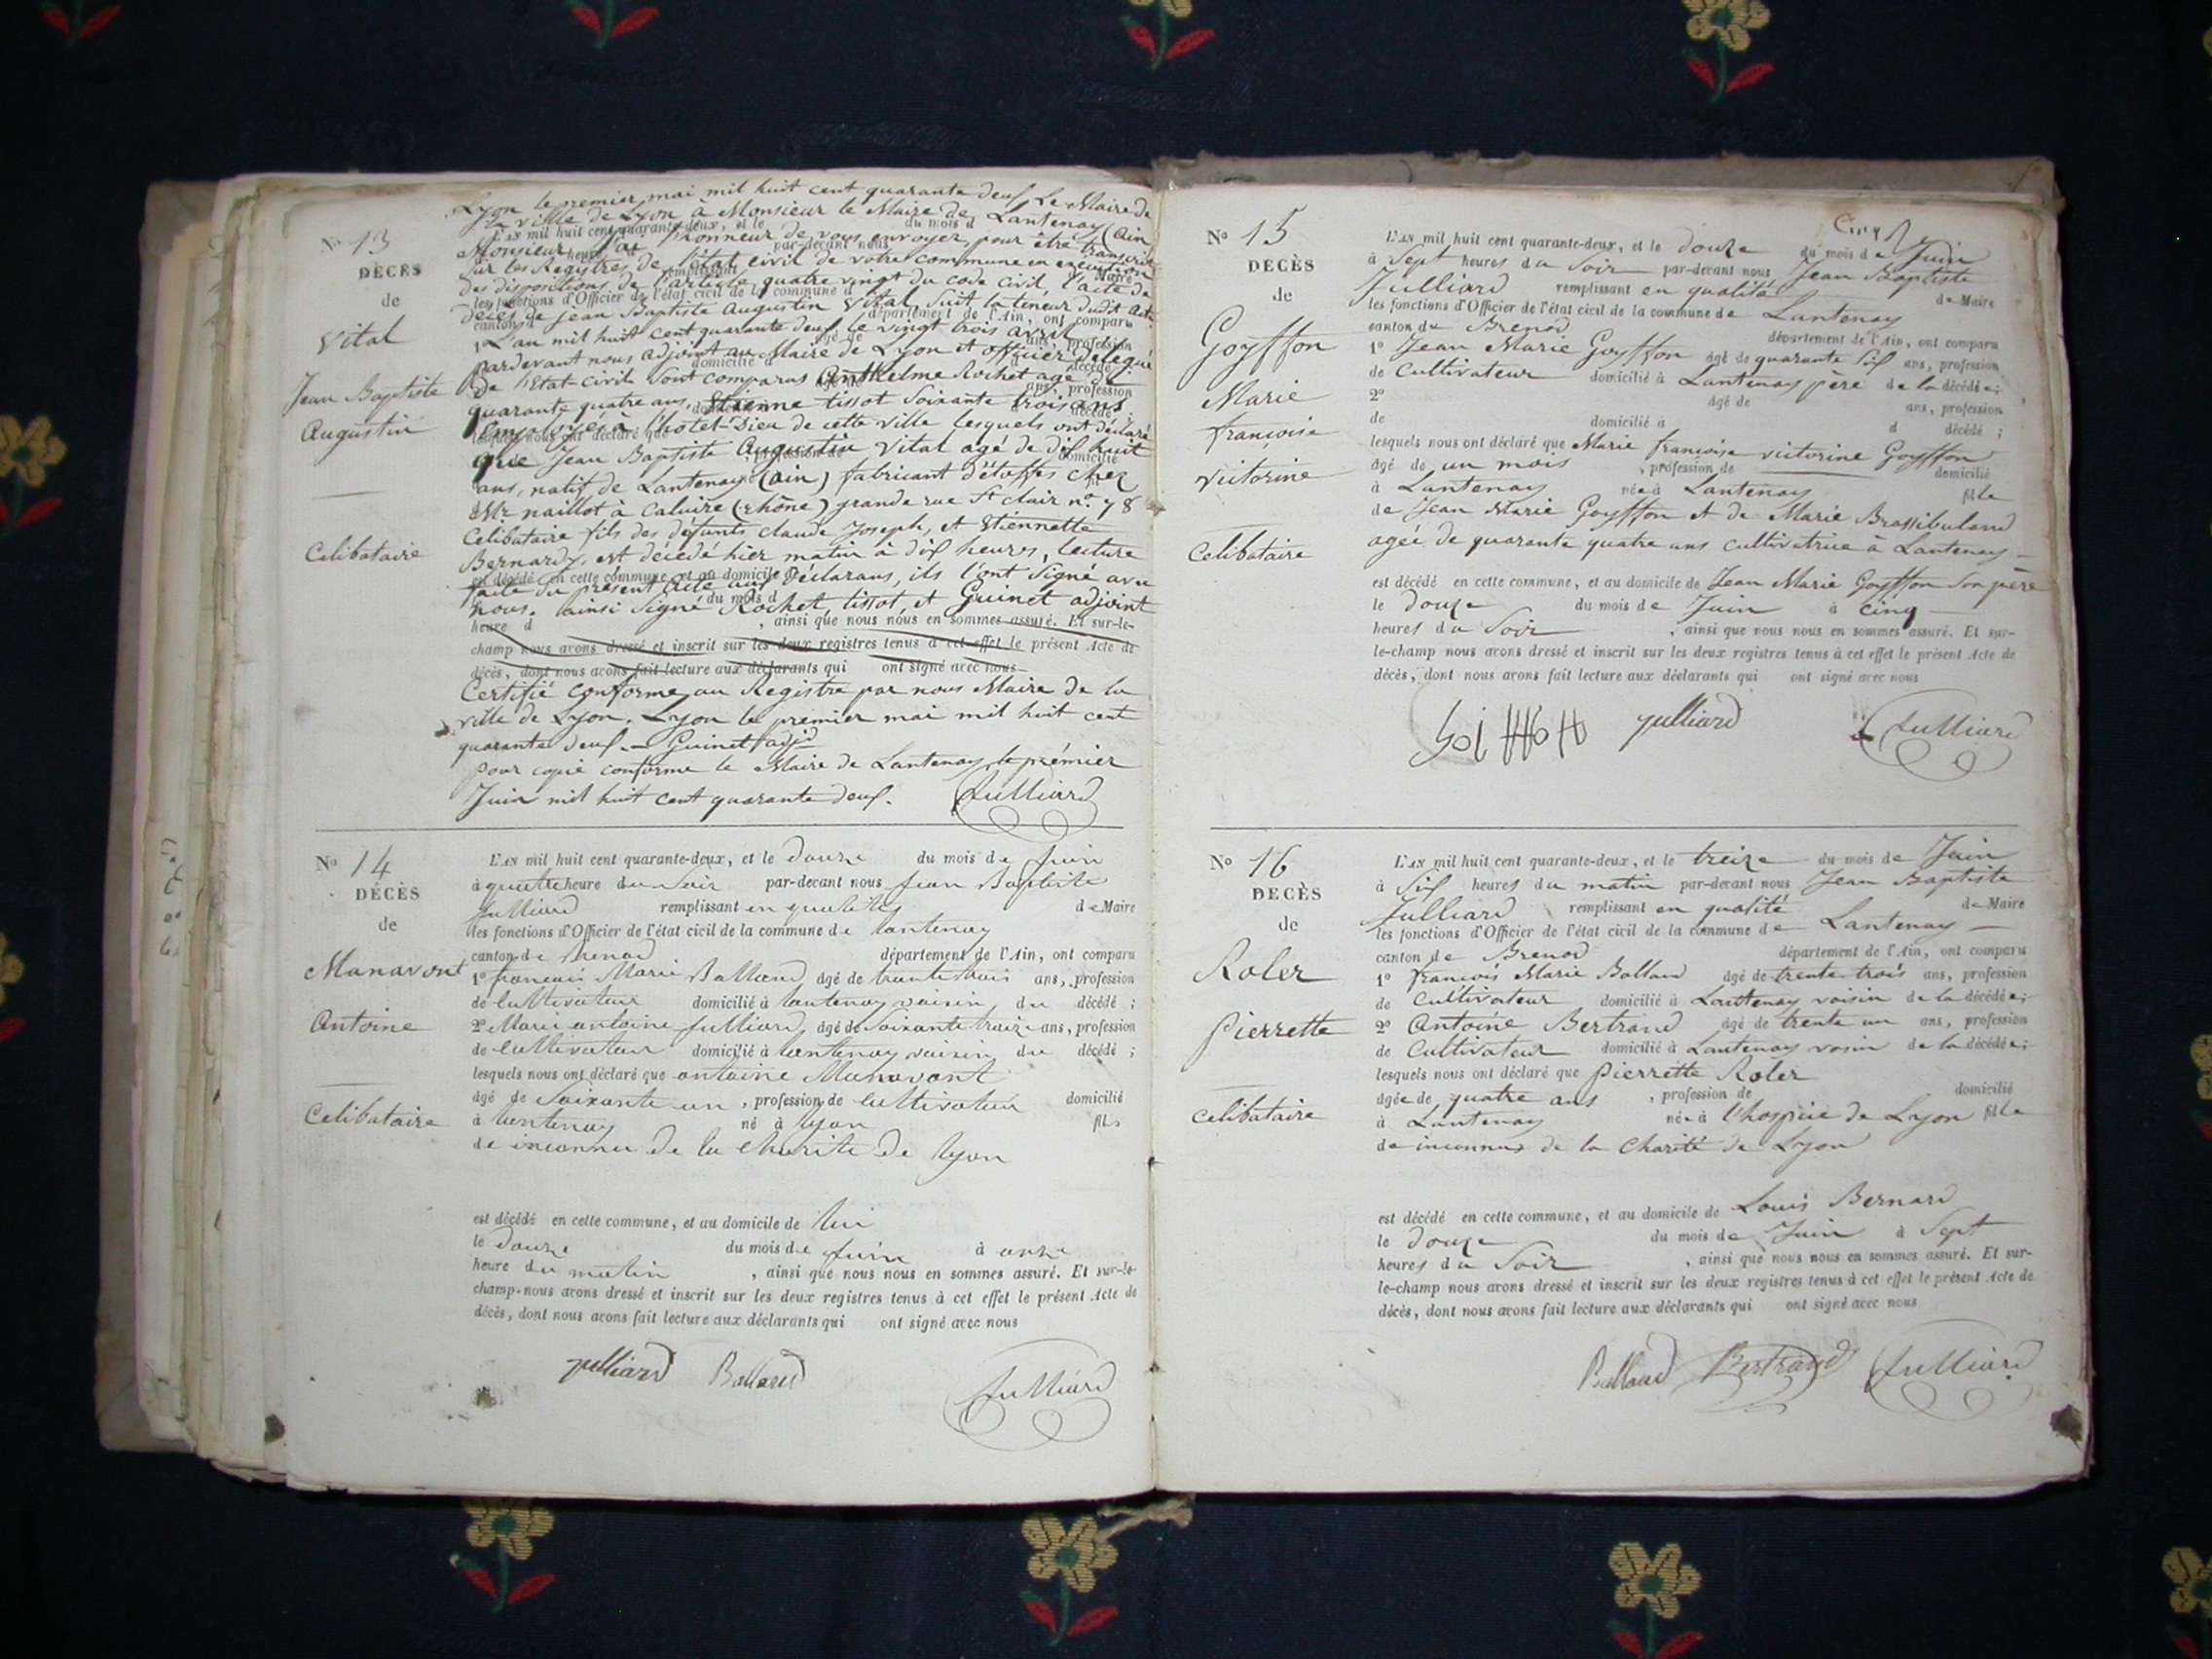 Nº 13
DÉCÈS
de
Vital
Jean Baptiste
Augustin
Celibataire
Lyon le premier mai mil huit cent quarante deux Le Maire de
la ville de Lyon à Monsieur le Maire de Lantenay (Ain
Monsieur j'ai l'honneur de vous envoyer pour être transcrit
sur les Registres de l'état civil de votre commune en execution
des dispositions de l'article quatre vingt du code civil, l'acte de
décès de Jean Baptiste Augustin Vital, suit la teneur dudit acte
L'an mil huit cent quarante deux le vingt trois avril
pardevant nous adjoint au Maire de Lyon et officier delegué
de l'Etat-civil sont comparus Anthelme Rochet agé de
quarante quatre ans, Etienne tissot soixante trois ans
Employés à l'hotel-Dieu de cette ville lesquels ont déclaré
que Jean Baptiste Augustin Vital agé de dix huit
ans, natif de Lantenay (ain) fabricant d'étoffes chez
Mr naillot à Caluire (rhône) grande rue St clair nº 78
Celibataire fils des défunts claude Joseph, et Etiennette
Bernardy, est decedé hier matin à dix heures, lecture
faite du présent acte aux Déclarans, ils l'ont signé avec
nous. ainsi signé Rochet, tissot, et Guinet adjoint
heure d , ainsi que nous nous en sommes assuré. Et sur-le-
champ nous avons dressé et inscrit sur les deux registres tenus à cet effet le présent Acte de
décès, dont nous avons fait lecture aux déclarants qui ont signé avec nous
Certifié conforme au Registre par nous Maire de la
ville de Lyon. Lyon le premier mai mil huit cent
quarante deux. — Guinet adjd
pour copie conforme le Maire de Lantenay le prémier
Juin mil huit cent quarante deux. Julliard
Nº 14
DÉCÈS
de
Manavont
Antoine
Celibataire
L'AN mil huit cent quarante-deux, et le douze du mois de juin
à quatre heure du soir par-devant nous jean Baptiste
julliard remplissant en qualités de Maire
les fonctions d'Officier de l'état civil de la commune de lantenay
canton de Brenod département de l'Ain, ont comparu
1º francois Marie Balland âgé de trente trois ans, profession
de cultivateur domicilié à lantenay voisin du décédé ;
2º Marie antoine julliard âgé de soixante treize ans, profession
de cultivateur domicilié à lantenay voisin du décédé ;
lesquels nous ont déclaré que antoine Manavont
âgé de soixante un , profession de cultivateur domicilié
à lantenay né à lyon fils
de inconnu de la charité de lyon
est décédé en cette commune, et au domicile de lui
le douze du mois de juin à onze
heure du matin , ainsi que nous nous en sommes assuré. Et sur-le-
champ nous avons dressé et inscrit sur les deux registres tenus à cet effet le présent Acte de
décès, dont nous avons fait lecture aux déclarants qui ont signé avec nous
julliard Balland Julliard
Nº 15
DÉCÈS
de
Goyffon
Marie
francoise
victorine
Celibataire
L'AN mil huit cent quarante-deux, et le douze du mois de Juin
à Sept heures du Soir par-devant nous Jean Baptiste
Julliard remplissant en qualité de Maire
les fonctions d'Officier de l'état civil de la commune de Lantenay
canton de Brenod département de l'Ain, ont comparu
1º Jean Marie Goyffon âgé de quarante six ans, profession
de Cultivateur domicilié à Lantenay père de la décédée;
2º âgé de ans, profession
de domicilié à d décédé ;
lesquels nous ont déclaré que Marie francoise victorine Goyffon
âgé de un mois , profession de domicilié
à Lantenay née à Lantenay fille
de Jean Marie Goyffon et de Marie Brassibuland
agée de quarante quatre ans cultivatrice à Lantenay
est décédé en cette commune, et au domicile de Jean Marie Goyffon son père
le douze du mois de Juin à cinq
heures du Soir , ainsi que nous nous en sommes assuré. Et sur-
le-champ nous avons dressé et inscrit sur les deux registres tenus à cet effet le présent Acte de
décès, dont nous avons fait lecture aux déclarants qui ont signé avec nous
julliard Julliard
Nº 16
DÉCÈS
de
Roler
Pierrette
Celibataire
L'AN mil huit cent quarante-deux, et le treize du mois de Juin
à Six heures du matin par-devant nous Jean Baptiste
Julliard remplissant en qualité de Maire
les fonctions d'Officier de l'état civil de la commune de Lantenay
canton de Brenod département de l'Ain, ont comparu
1º françois Marie Balland âgé de trente trois ans, profession
de Cultivateur domicilié à Lantenay voisin de la décédée;
2º Antoine Bertrand âgé de trente un ans, profession
de Cultivateur domicilié à Lantenay voisin de la décédée;
lesquels nous ont déclaré que pierrette Roler
âgée de quatre ans , profession de domicilié
à Lantenay née à l'hospice de Lyon fille
de inconnus de la Charité de Lyon
est décédé en cette commune, et au domicile de Louis Bernard
le douze du mois de Juin à Sept
heures du Soir , ainsi que nous nous en sommes assuré. Et sur-
le-champ nous avons dressé et inscrit sur les deux registres tenus à cet effet le présent Acte de
décès, dont nous avons fait lecture aux déclarants qui ont signé avec nous
Balland Bertrand Julliard